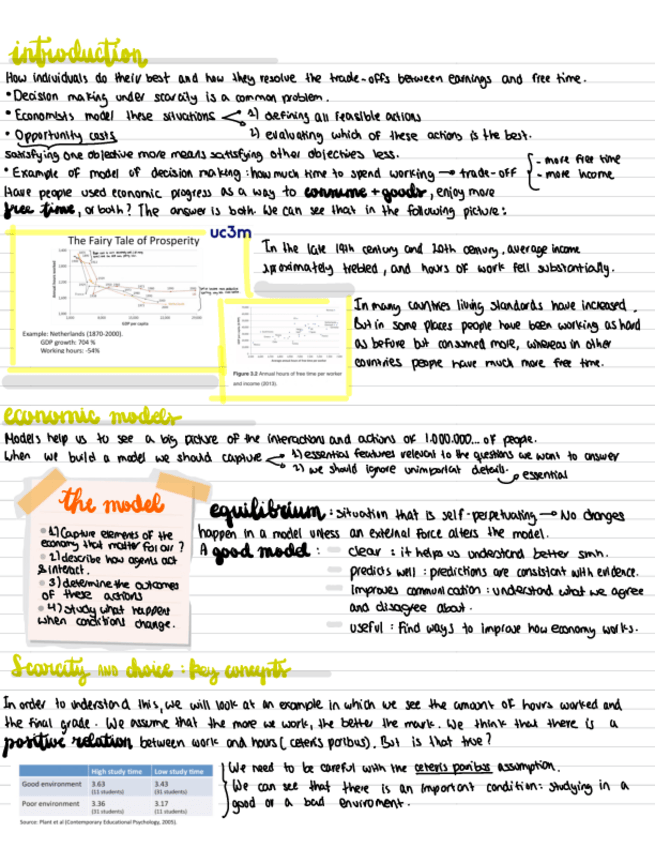 introduction
How individuals do their best and how they resolve the trade-offs between earnings and free time.
• Decision making under scarcity is a common problem.
• Economists model these situations 1) defining all feasible actions
2) evaluating which of these actions is the best.
• Opportunity costs
satisfying one objective more means satisfying other objectives less.
• Example of model of decision making: how much time to spend working → trade-off
- more free time
- more income
Have people used economic progress as a way to consume + goods, enjoy more
free time, or both? The answer is both. We can see that in the following picture:
uc3m
The Fairy Tale of Prosperity
Annual hours worked
GDP per capita
Example: Netherlands (1870-2000).
GDP growth: 704 %
Working hours: -54%
In the late 19th century and 20th century, average income
aproximately trebled, and hours of work fell substantially.
Figure 3.2 Annual hours of free time per worker
and income (2013).
In many countries living standards have increased.
But in some places people have been working as hard
as before but consumed more, whereas in other
countries people have much more free time.
economic models
Models help us to see a big picture of the interactions and actions of 1.000.000... of people.
When we build a model we should capture 1) essential features relevant to the questions we want to answer
2) we should ignore unimportant details. essential
the model
• 1) Capture elements of the
economy that matter for our ?
• 2) describe how agents act
& interact.
• 3) determine the outcomes
of these actions
• 4) study what happens
when conditions change.
equilibrium: situation that is self-perpetuating → No changes
happen in a model unless an external force alters the model.
A good model: clear: it helps us understand better smth.
predicts well: predictions are consistent with evidence.
Improves communication: understand what we agree
and disagree about.
useful: Find ways to improve how economy works.
Scarcity and choice: key concepts
In order to understand this, we will look at an example in which we see the amount of hours worked and
the final grade. We assume that the more we work, the better the mark. We think that there is a
positive relation between work and hours (ceteris paribus). But is that true?
High study time Low study time
Good environment 3.63 3.43
(11 students) (31 students)
Poor environment 3.36 3.17
(31 students) (11 students)
Source: Plant et al (Contemporary Educational Psychology, 2005).
We need to be careful with the ceteris paribus assumption.
We can see that there is an important condition: studying in a
good or a bad enviroment.